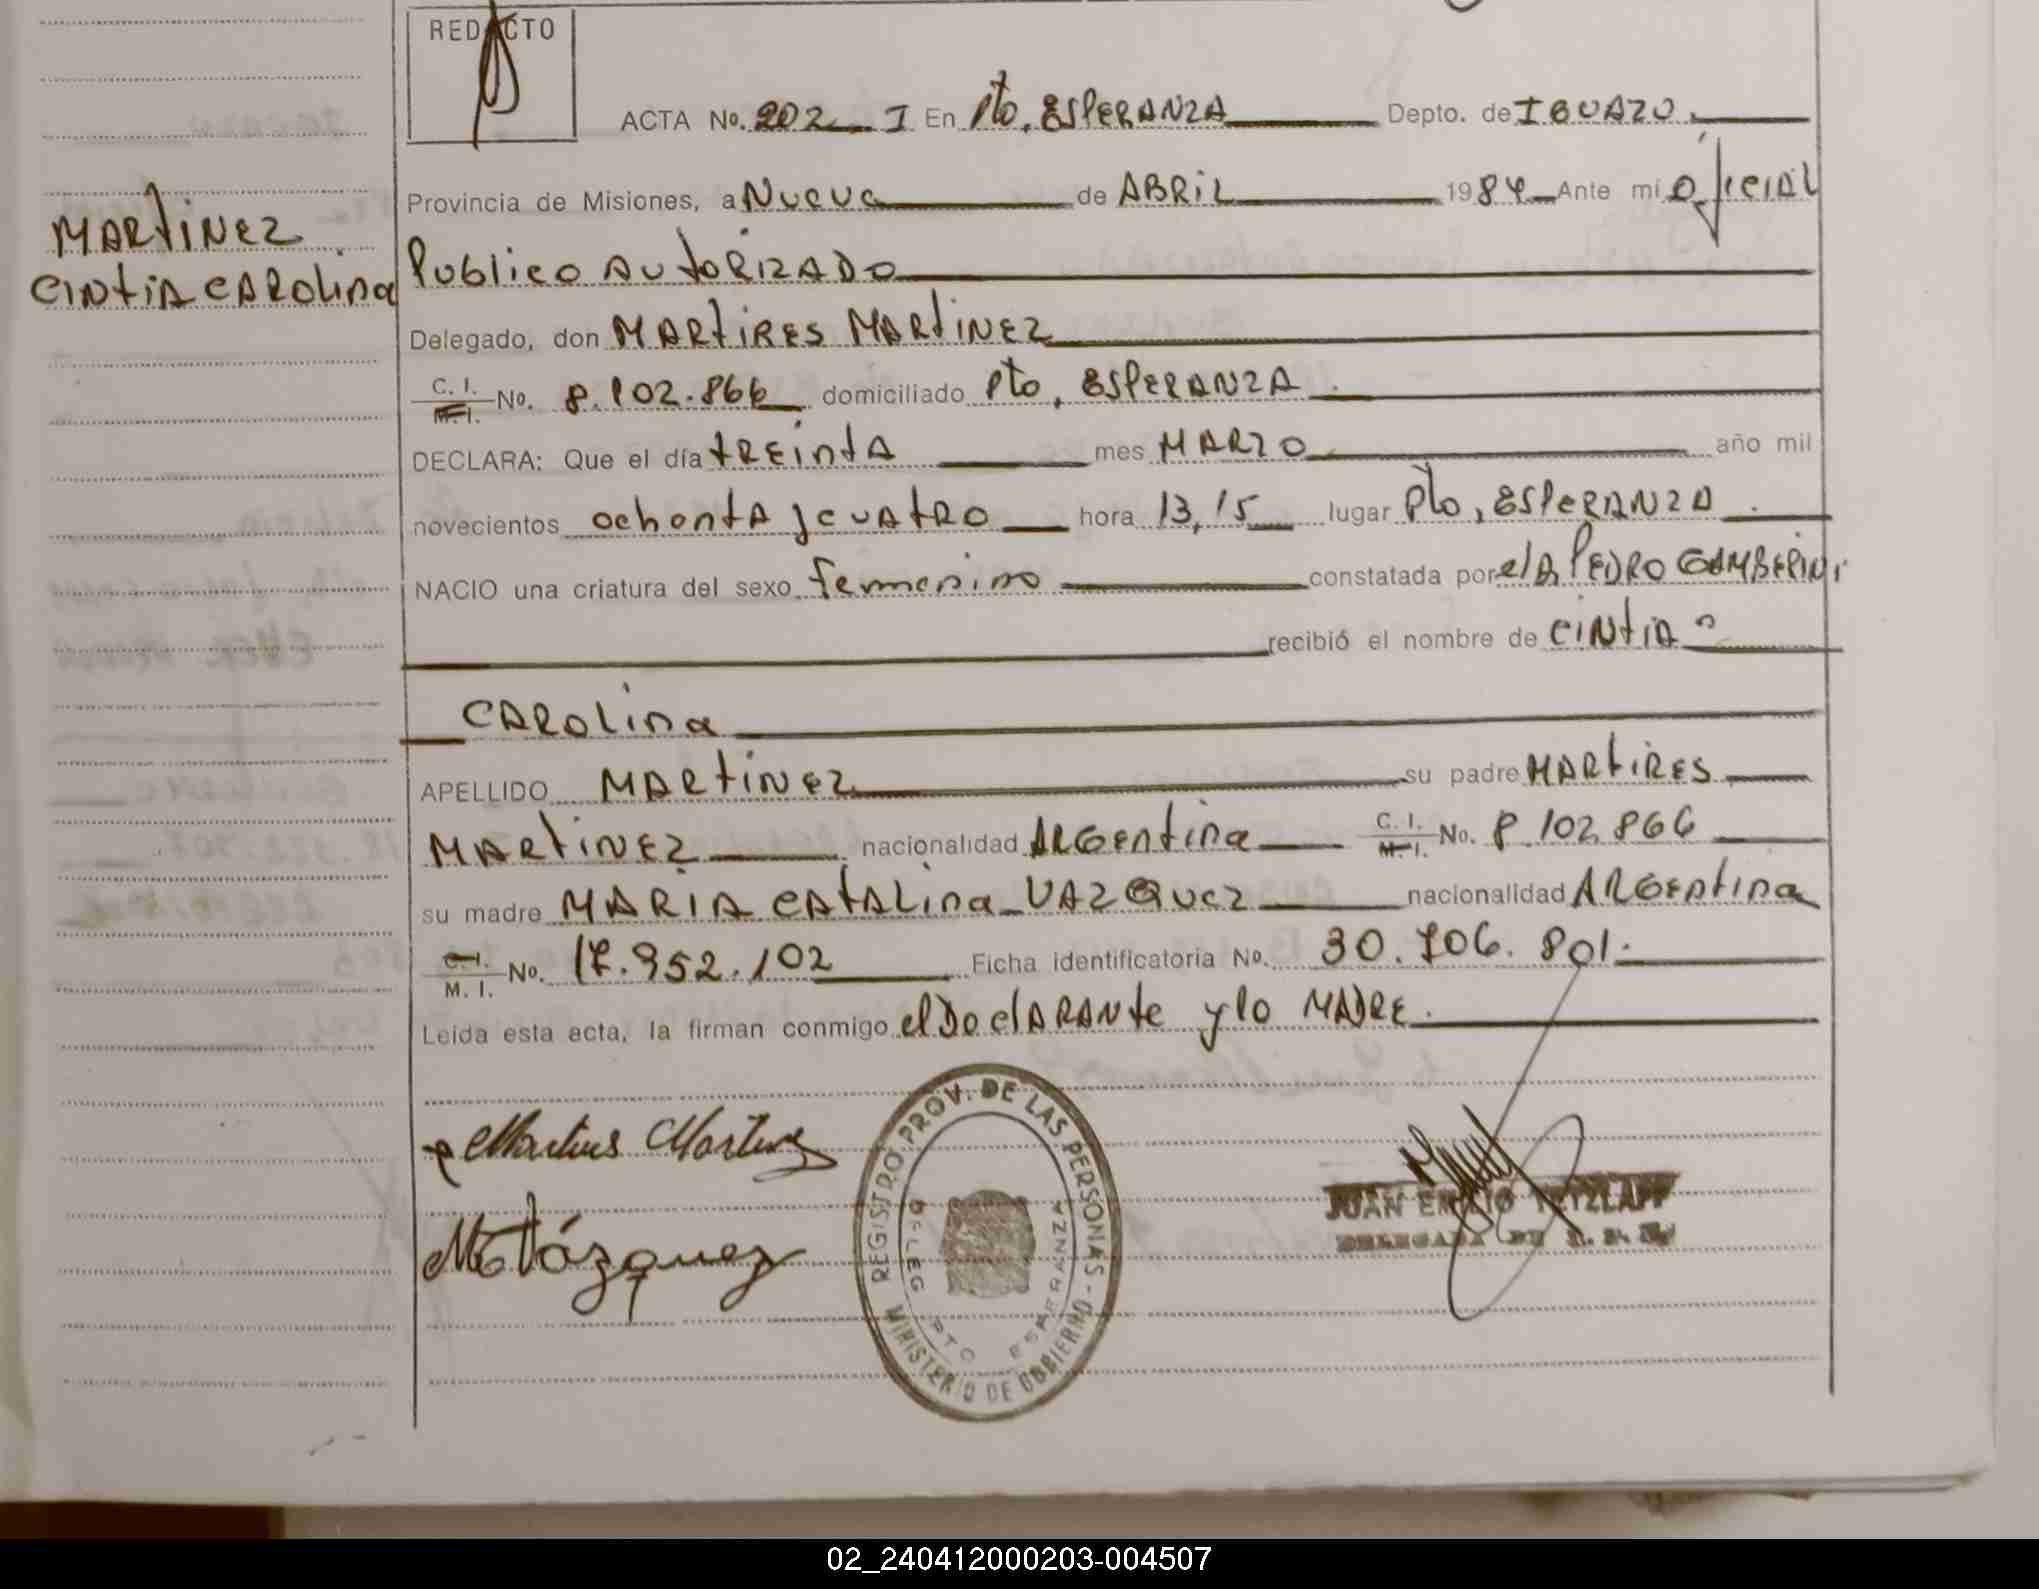 REDACTO
ACTA No. 202 I En Pto. ESPERANZA Depto. de IGUAZU.
Provincia de Misiones, a Nueve de ABRIL 1984 Ante mi Oficial
MARTINEZ
CINTIA CAROLINA
Publico AUTORIZADO
Delegado, don MARTIRES MARTINEZ
C. I.
M. I. No. 8.102.866 domiciliado Pto, ESPERANZA.
DECLARA: Que el día treinta mes MARZO año mil
novecientos ochenta y cuatro hora 13,15 lugar Pto, ESPERANZA.
NACIO una criatura del sexo femenino constatada por el A, PEDRO GAMBERINI
recibió el nombre de CINTIA
CAROLINA
APELLIDO MARTINEZ su padre MARTIRES
MARTINEZ nacionalidad ARGENTINA C. I.
M. I. No. 8.102.866
su madre MARIA CATALINA VAZQUEZ nacionalidad ARGENTINA
C. I.
M. I. No. 17.952.102 Ficha identificatoria No. 30.706.801.
Leída esta acta, la firman conmigo el DeclARANte y la MADRE.
Martires Martinez
Vázquez
REGISTRO PROV. DE LAS PERSONAS - MINISTERIO DE GOBIERNO
DELEG PTO ESPERANZA
JUAN EMILIO TETZLAFF
02_240412000203-004507